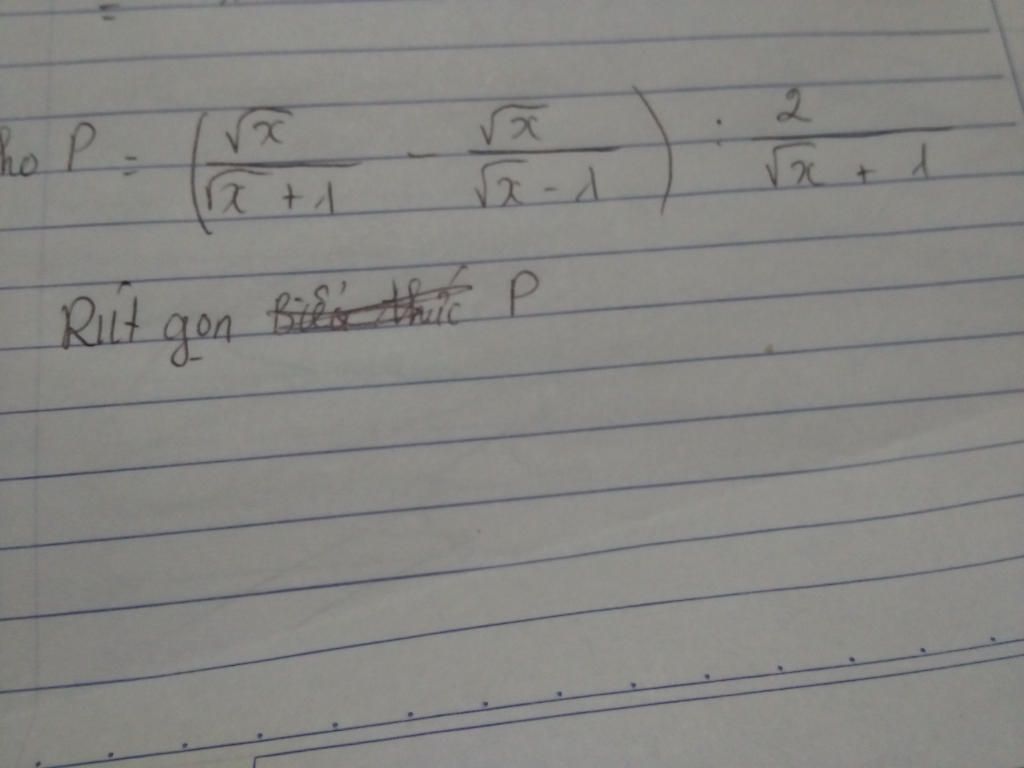 ho P = (√x / (√x + 1) - √x / (√x - 1)) : 2 / (√x + 1)
Rút gọn biểu thức P